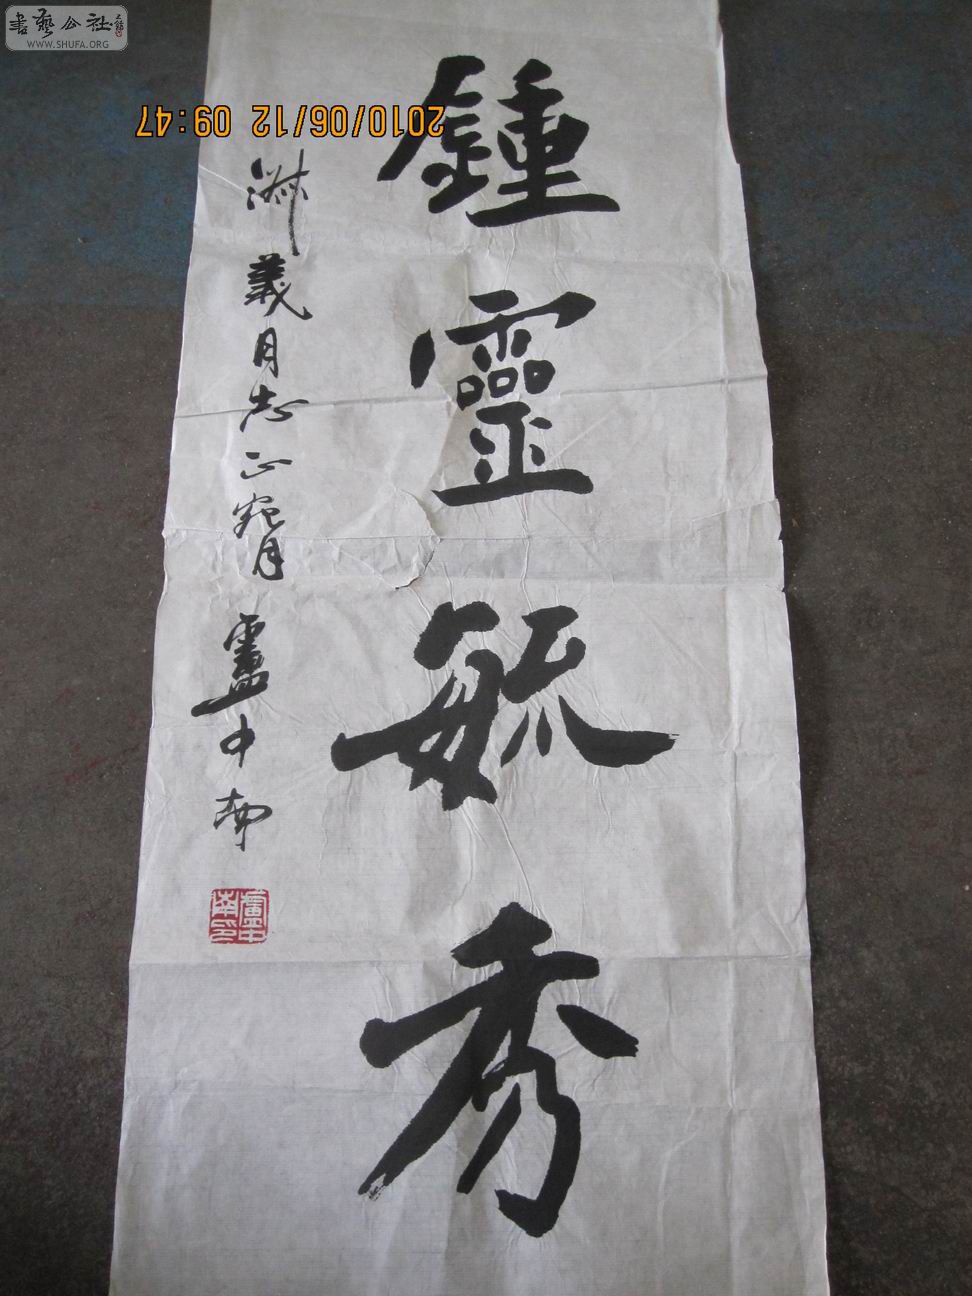 鍾靈毓秀
淋義同志正宛月
盧中南
盧中南印
2010/06/12 09:47
書藝公社
WWW.SHUFA.ORG